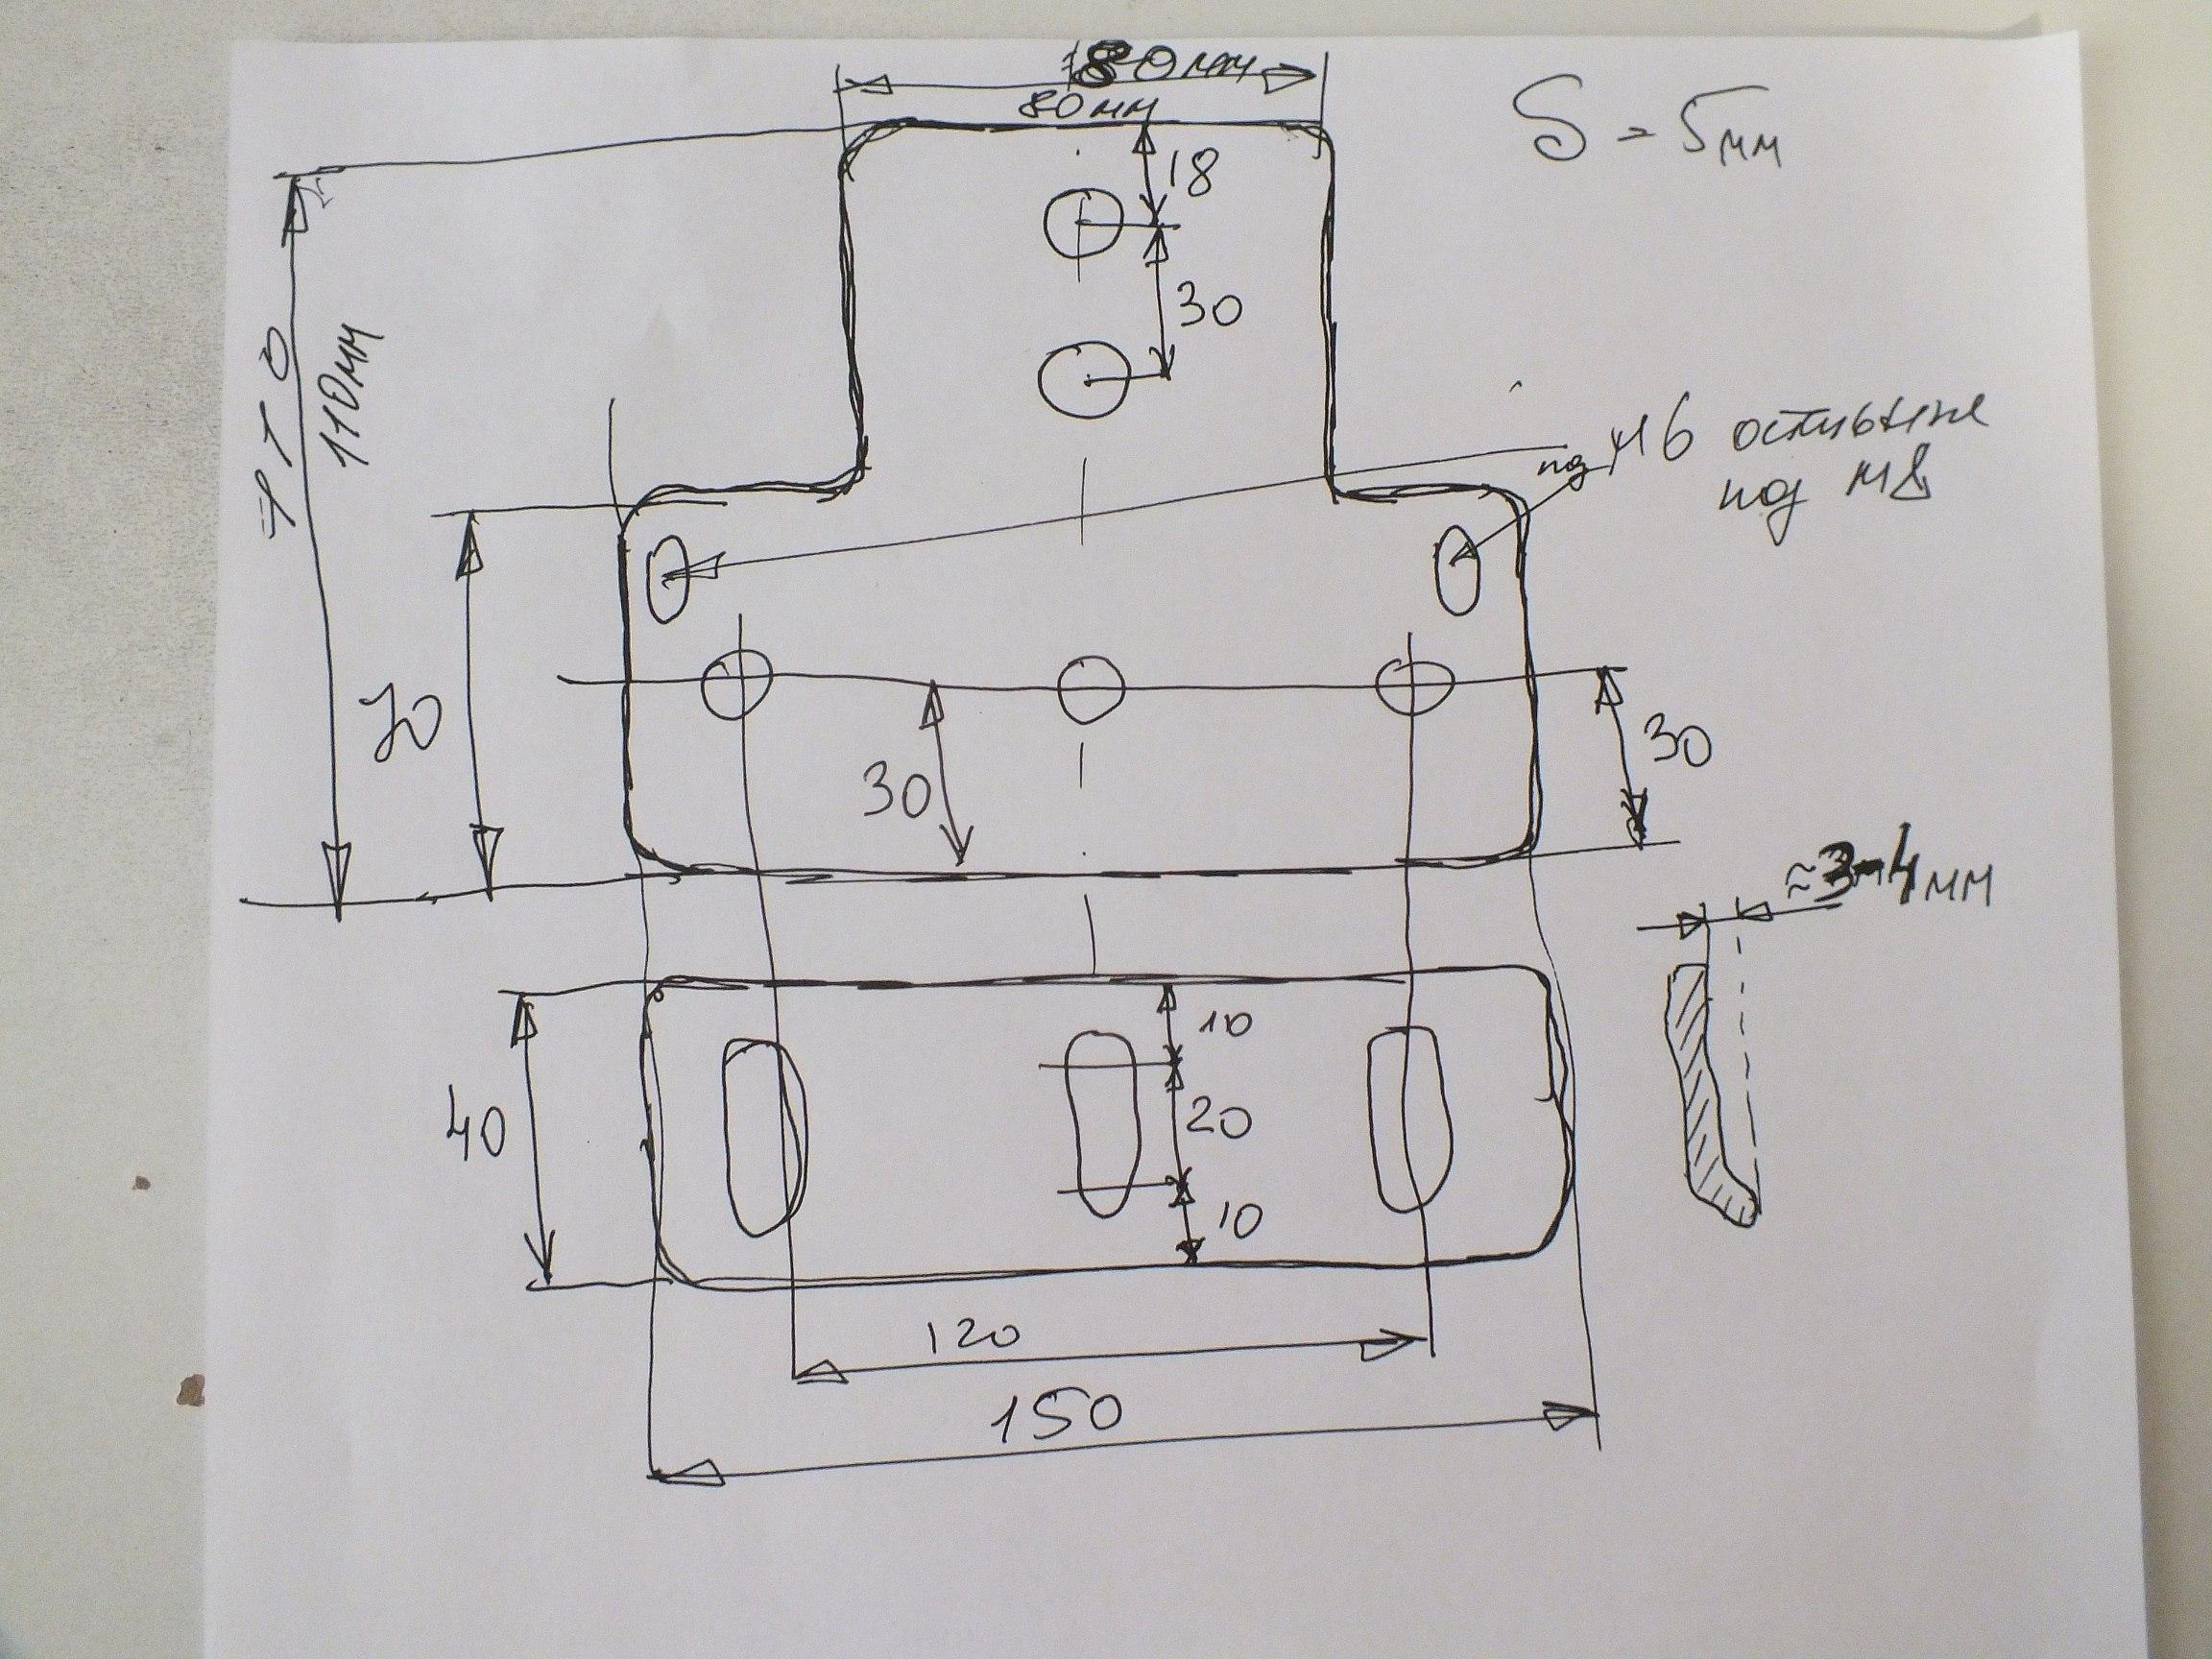 80мм
80мм
S = 5мм
18
30
110
110мм
под М6 остльные
под М8
70
30
30
≈3-4мм
40
10
20
10
120
150